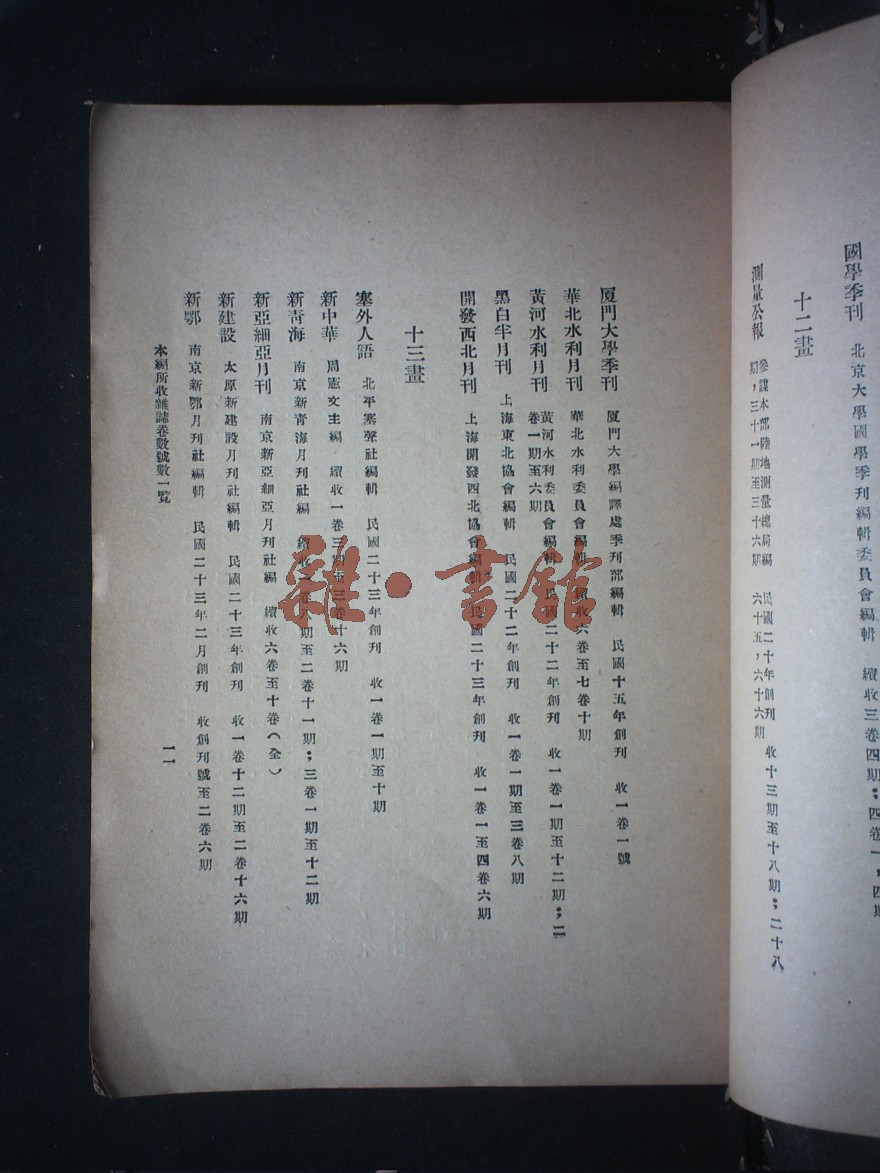 國學季刊　北京大學國學季刊編輯委員會編輯　續收三卷四期；四卷一，四期
十二畫
測量公報　參謀本部陸地測量總局編　民國二十年創刊　收十三期至十八期；二十八
期，三十一期至三十六期　六十五，六十六期
厦門大學季刊　厦門大學編譯處季刊部編輯　民國十五年創刊　收一卷一號
華北水利月刊　華北水利委員會編輯　續收六卷至七卷十期
黃河水利月刊　黃河水利委員會編輯　民國二十二年創刊　收一卷一期至十二期；二
卷一期至六期
黑白半月刊　上海東北協會編輯　民國二十二年創刊　收一卷一期至三卷八期
開發西北月刊　上海開發西北協會編輯　民國二十三年創刊　收一卷一至四卷六期
十三畫
塞外人語　北平塞聲社編輯　民國二十三年創刊　收一卷一期至十期
新中華　周憲文主編　續收一卷三期至三卷十六期
新青海　南京新青海月刊社編　續收一卷八期至二卷十一期；三卷一期至十二期
新亞細亞月刊　南京新亞細亞月刊社編　續收六卷至十卷（全）
新建設　太原新建設月刊社編輯　民國二十三年創刊　收一卷十二期至二卷十六期
新鄂　南京新鄂月刊社編輯　民國二十三年二月創刊　收創刊號至二卷六期
本編所收雜誌卷數號數一覽
一一
雜·書館